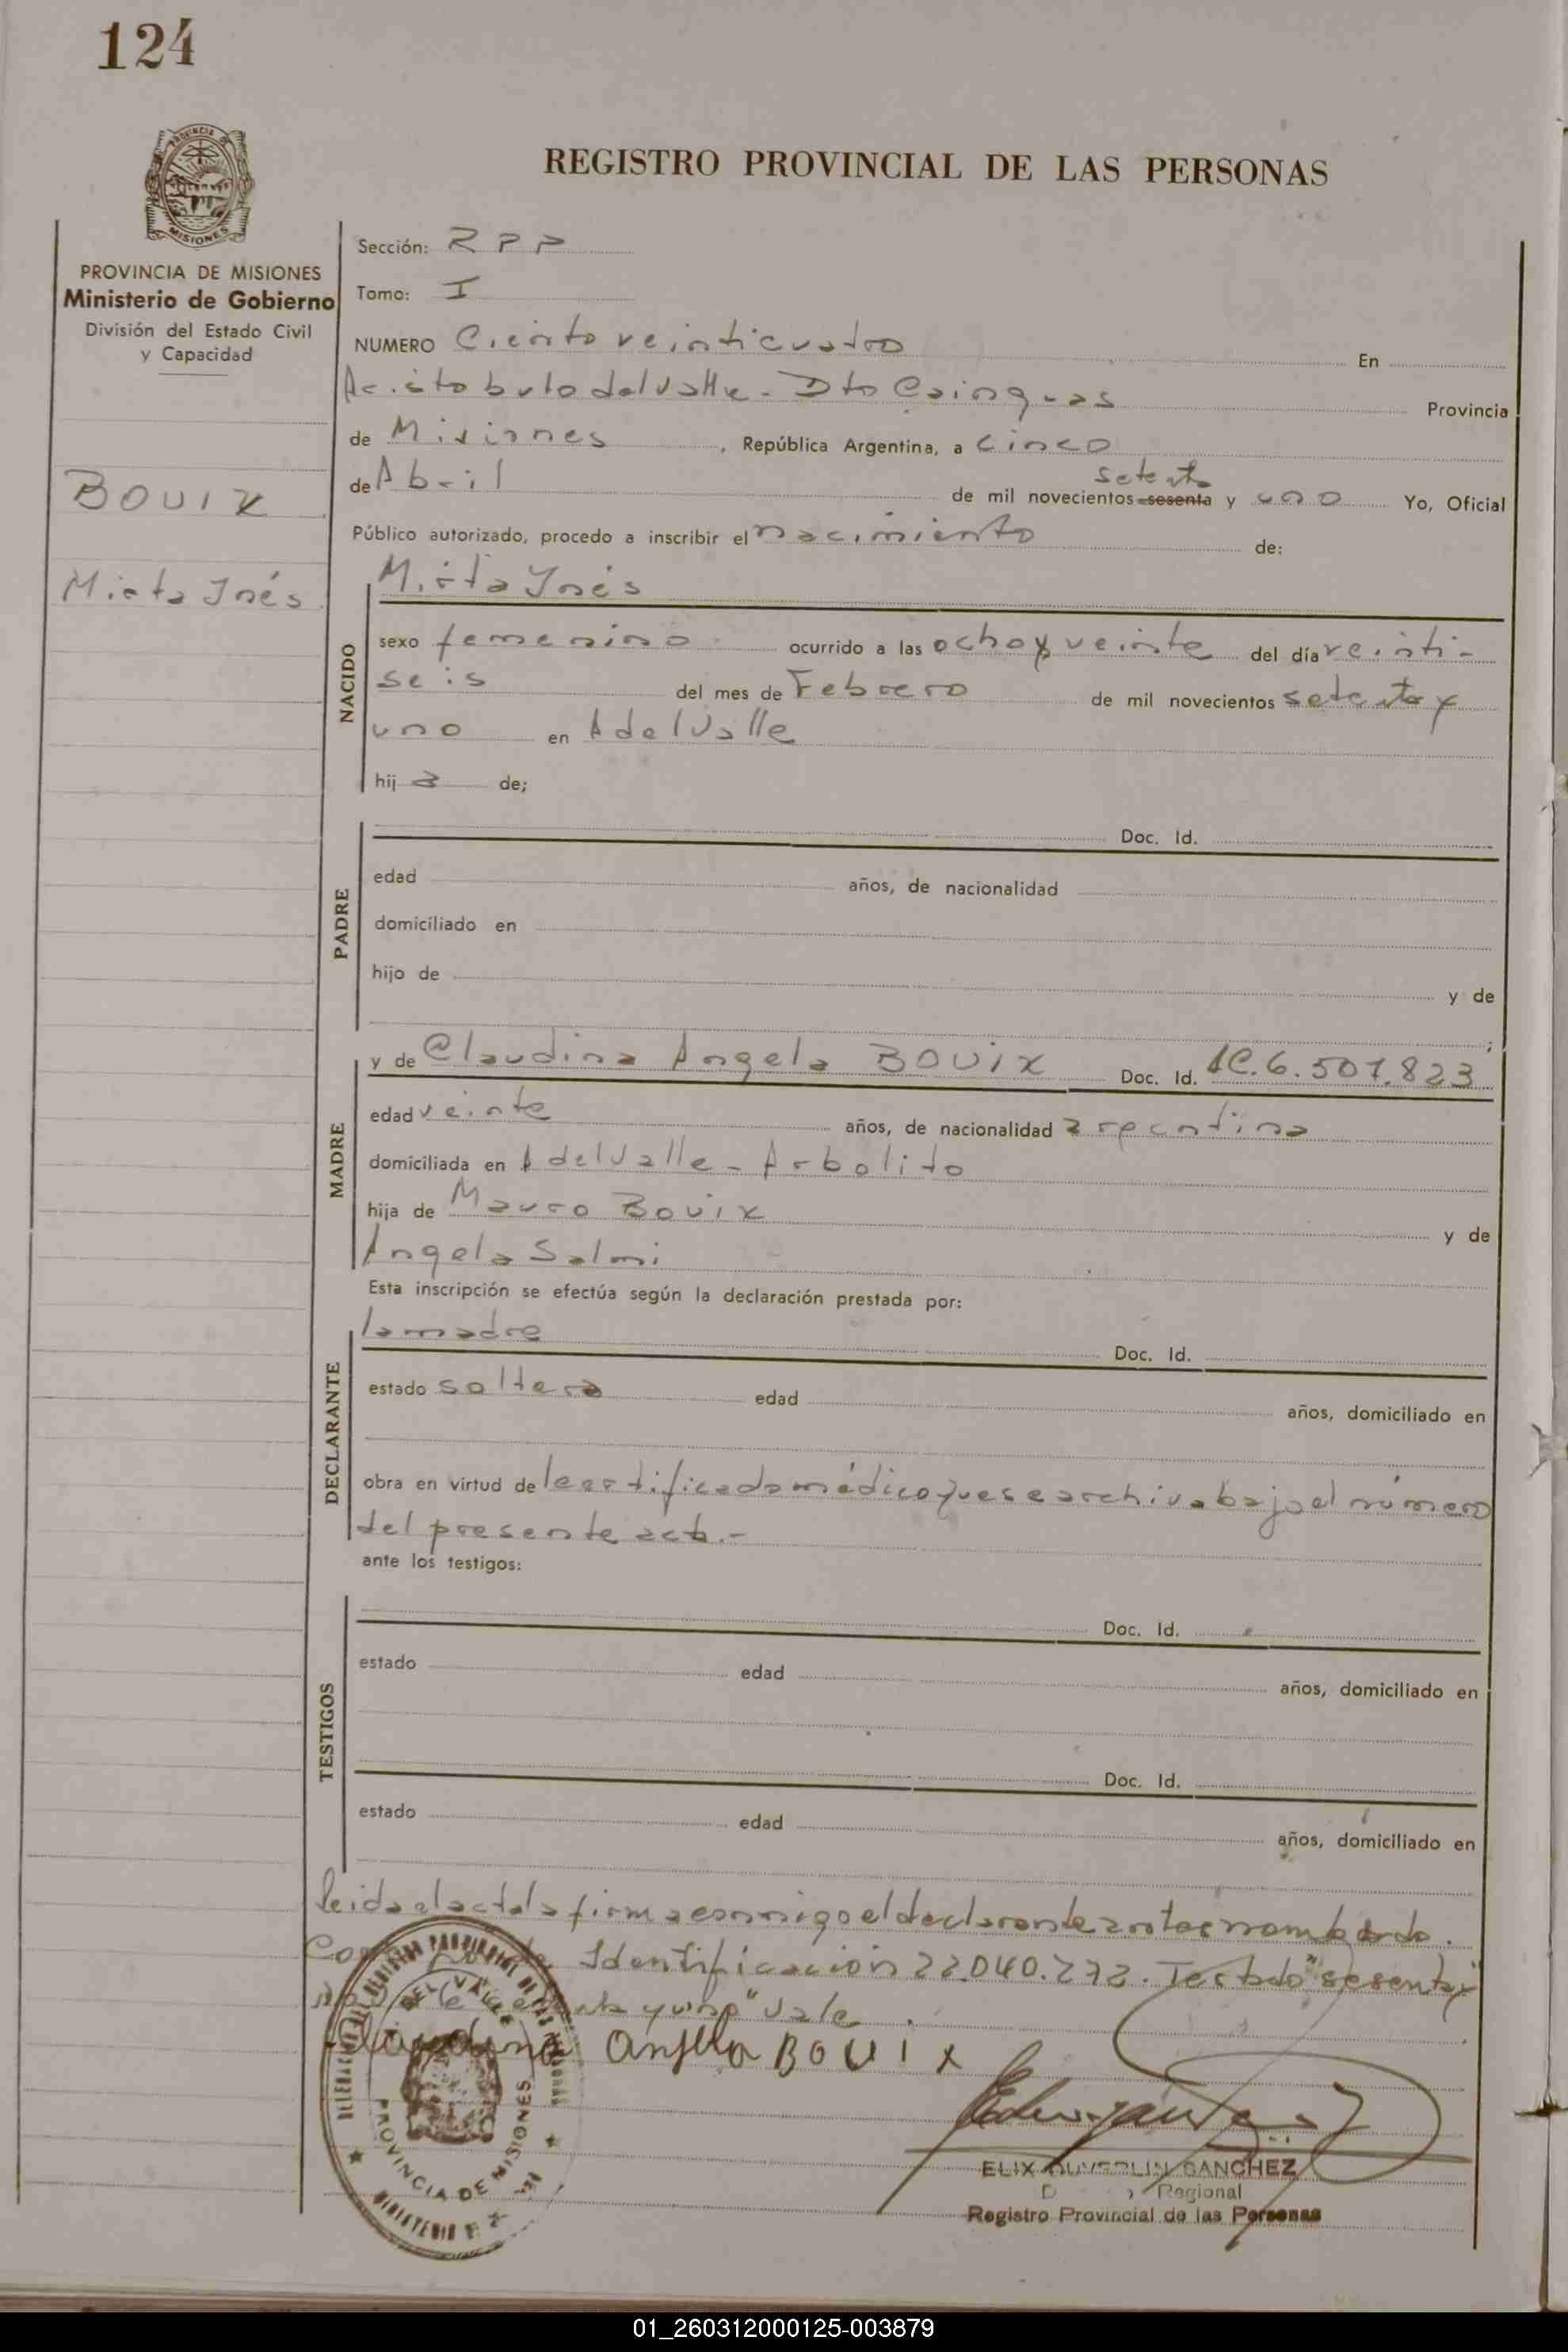 124
PROVINCIA DE
MISIONES
PROVINCIA DE MISIONES
Ministerio de Gobierno
División del Estado Civil
y Capacidad
BOUIX
Mirta Inés
REGISTRO PROVINCIAL DE LAS PERSONAS
Sección: RPP
Tomo: I
NUMERO Ciento veinticuatro En
Aristobulo del Valle - Dto Cainguas Provincia
de Misiones, República Argentina, a cinco
setenta
de Abril de mil novecientos sesenta y uno Yo, Oficial
Público autorizado, procedo a inscribir el nacimiento de:
Mirta Ynés
NACIDO
sexo femenino ocurrido a las ocho y veinte del día veinti-
seis del mes de Febrero de mil novecientos setenta y
uno en A del Valle
hij a de;
PADRE
Doc. Id.
edad años, de nacionalidad
domiciliado en
hijo de y de
;
MADRE
y de Claudina Angela BOUIX Doc. Id. LC. 6.507.823
edad veinte años, de nacionalidad argentina
domiciliada en A del Valle - Arbolito
hija de Mauro Bouix y de
Angela Salmi
Esta inscripción se efectúa según la declaración prestada por:
DECLARANTE
la madre Doc. Id.
estado soltera edad años, domiciliado en
obra en virtud de certificado médico que se archiva bajo el número
del presente acta.-
ante los testigos:
TESTIGOS
Doc. Id.
estado edad años, domiciliado en
Doc. Id.
estado edad años, domiciliado en
leida el acta la firma conmigo el declarante antes nombrado.
Identificación 22.040.272. Testado "sesenta y"
y uno" vale.
Claudina Angela BOUIX
DEL VALLE
PROVINCIA DE MISIONES
MINISTERIO
ELIX SANCHEZ
Regional
Registro Provincial de las Personas
01_260312000125-003879